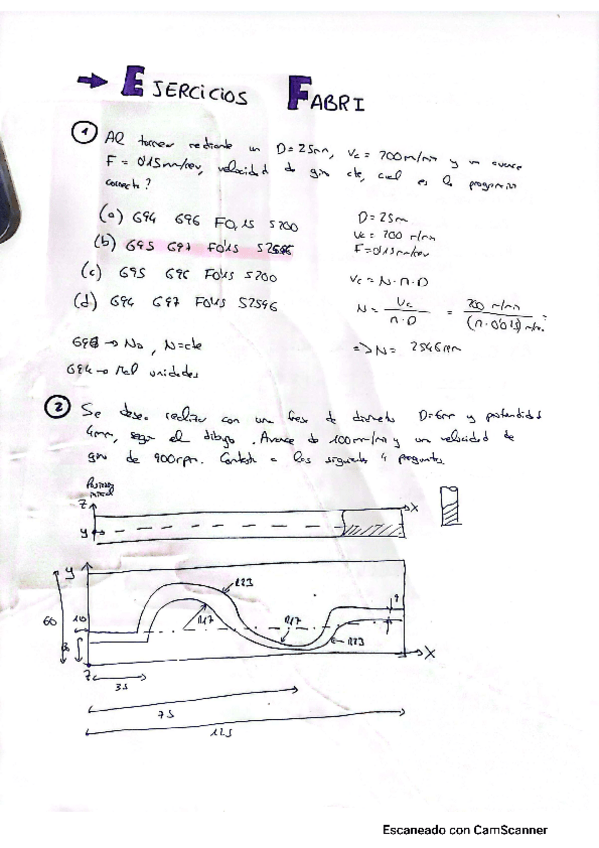 → EJERCICIOS FABRI
① Al tornear mediante un D=25mm, Vc = 200m/min y un avance
F = 0'15mm/rev, velocidad de giro cte, cual es la programación
correcta?
(a) G94 G96 F0,15 S200
(b) G95 G97 F0'15 S2546
(c) G95 G96 F0'15 S200
(d) G94 G97 F0'15 S2546
D=25mm
Vc = 200 m/min
F=0'15mm/rev
Vc = N·π·D
N = Vc / π·D = 200 m/min / (π·0'025) m/rev
=> N= 2546rpm
G96 → No, N=cte
G94 → Mal unidades
② Se desea realizar con una fresa de diametro D=6mm y profundidad
4mm, segun el dibujo. Avance de 100mm/min y un velocidad de
giro de 900rpm. Contesta a las siguientes 4 preguntas.
Z
X
Y
Y
R23
60
10
R17
R17
R23
X
Z
35
75
125
Escaneado con CamScanner